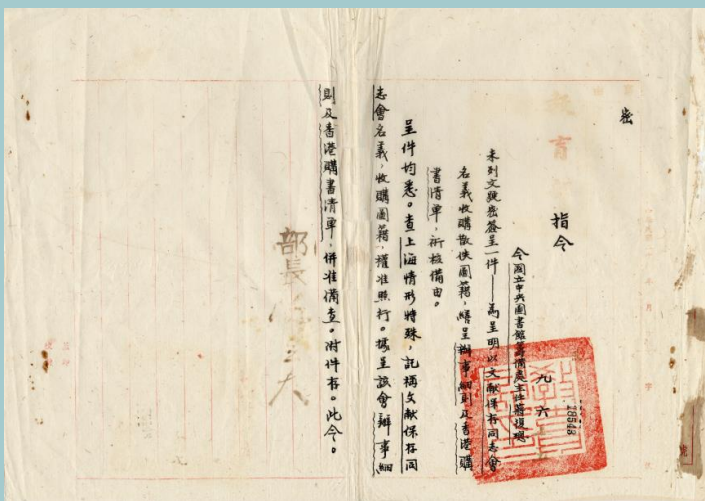 密
教育
指令
令國立中央圖書館籌備處主任蔣復璁
九 六
28548
未列文號密簽呈一件——為呈明以文獻保存同志會
名義收購散佚圖籍，繕呈辦事細則及香港購
書清單，祈核備由。
呈件均悉。查上海情形特殊，託稱文獻保存同
志會名義，收購圖籍，權准照行。據呈該會辦事細
則及香港購書清單，併准備查。附件存。此令。
部長